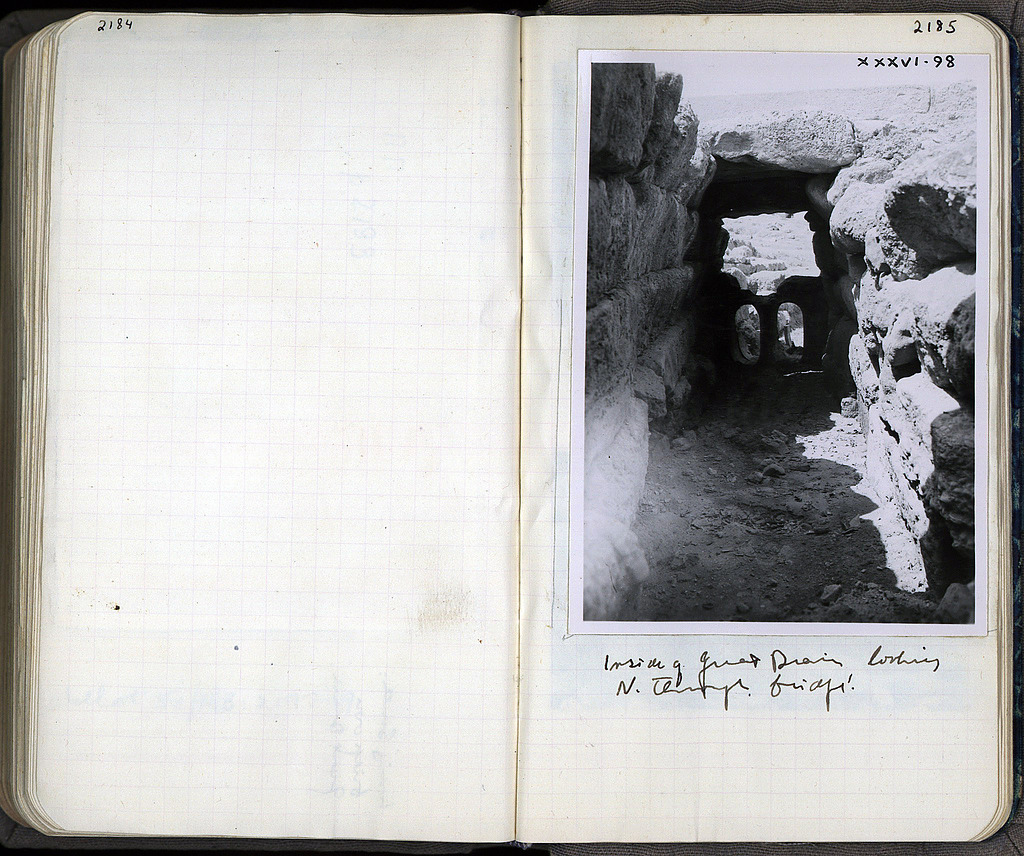 2184
2185
XXXVI-98
Inside of Great Drain looking
N. through bridge.